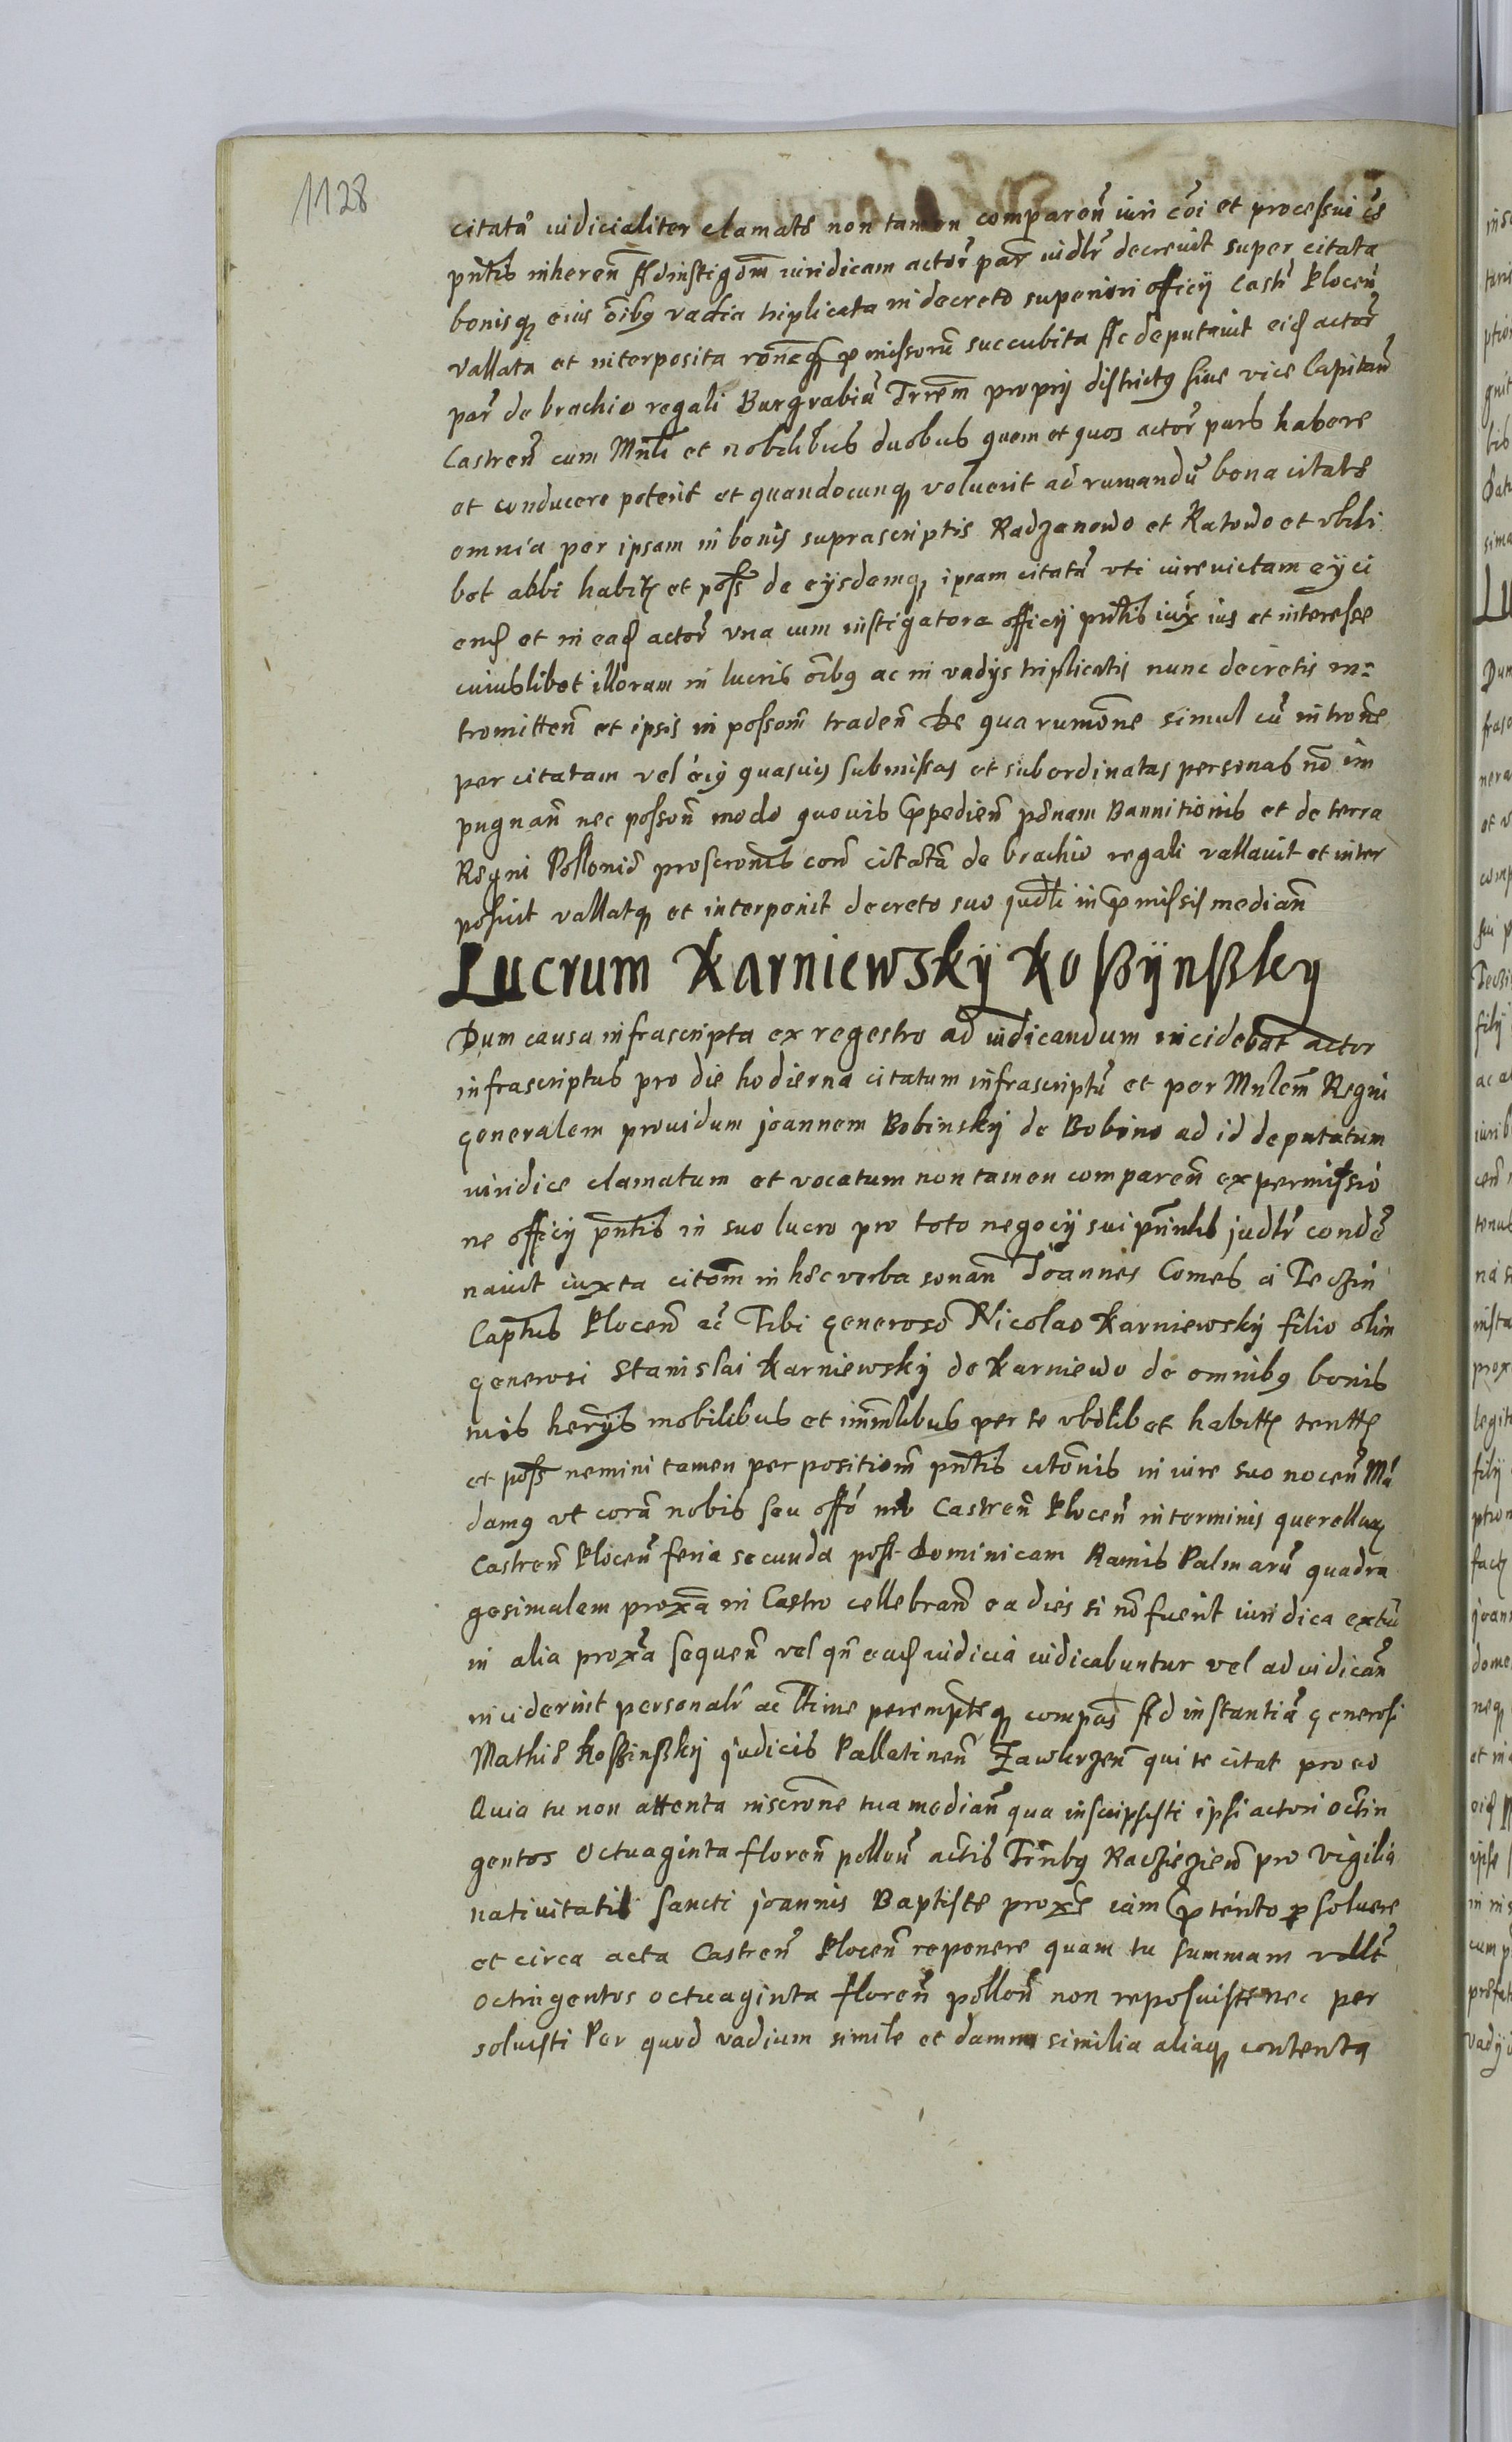 1128
citatę iudicialiter clamatę non tamen comparen̄ iuri cōi et processui cę
pn̄tis inheren̄ Ad instigōm̄ iuridicam actor̄ par̄ iudtr̄ decreuit super citata
bonisq₃ eius oībȝ vadia triplicata in decreto superiori officij Castri Plocen̄
vallata et interposita rōneq₃ pmissorū succubita Ac deputauit eid actor̄
par̄ de brachio regali Burgrabiū Trrem̄ proprij districtȝ siue vice Capitan̄
Castren̄ cum Mnli et nobilibus duobus quem et quos actor̄ pars habere
et conducere poterit et quandocunq₃ voluerit ad rumandū bona citatę
omnia per ipsam in bonis suprascriptis Radzanowo et Ratowo et vbili
bet alibi habit et poss de eysdemq₃ ipsam citatā vti iure victam eyci
end et in ead actor̄ vna cum instigatore officij pn̄tis iux ius et interesse
cuiuslibet illorum in lucris oībȝ ac in vadys triplicatis nunc decretis in=
tromitten̄ et ipsis in possom̄ traden̄ De qua rumōne simul cū introne
per citatam vel eiȝ quasuis submissas et subordinatas personas nō im
pugnan̄ nec posson̄ modo quouis Impedien̄ pęnam Bannitionis et de terra
Regni Pollonię proscronis con̄ citatā de brachio regali vallauit et inter
posuit vallatq₃ et interponit decreto suo judtli in pmissis median̄
Lucrum Karniewskÿ Koßÿnßky
Dum causa infrascripta ex regestro ad iudicandum incidebat actor
infrascriptus pro die hodierna citatum infrascriptū et per Mnlem̄ Regni
generalem prouidum joannem Bobinskÿ de Bobino ad id deputatum
iuridice clamatum et vocatum non tamen comparen̄ ex permissio
ne officij pn̄tis in suo lucro pro toto negocij sui prin̄lis judtr̄ condē
nauit iuxta citōm̄ in hęc verba sonan̄ Joannes Comes à Teczin
Captus Plocen̄ ac̄ Tibi generoso Nicolao Karniewskÿ filio olim
generosi Stanislai Karniewskÿ de Karniewo de omnibȝ bonis
tuis herijs mobilibus et imm̄libus per te vbilibet habitis tentis
et poss nemini tamen per positiom̄ pn̄tis citōnis in iure suo nocen̄ Mā
damȝ vt corā nobis seu offō nro Castren̄ Plocen̄ in terminis querellaꝝ
Castren̄ Plocen̄ feria secunda post Dominicam Ramis Palmarū quadra
gesimalem proxā in Castro cellebran̄ ea dies si nō fuerit iuridica extūc
in alia proxā sequen̄ vel qn̄ ead iudicia iudicabuntur vel ad iudican̄
inciderint personalr̄ ac ltime peremptēq₃ compās Ad instantiā generosi
Mathię Koßinßkÿ judicis Pallatinen̄ Zawkrzen̄ qui te citat pro eo
Quia tu non attenta inscrōne tua median̄ qua inscripsisti ipsi actori octin
gentos Octuaginta floren̄ pollon̄ actis Trr̄bȝ Racziezien̄ pro Vigilia
natiuitatis Sancti joannis Baptiste proxę iam pterito psoluere
et circa acta Castren̄ Plocen̄ reponere quam tu summam vdltt̄
octingentos octuaginta floren̄ pollon̄ non reposuisti nec per
soluisti Per quod vadium simile et damna similia aliaq₃ contenta